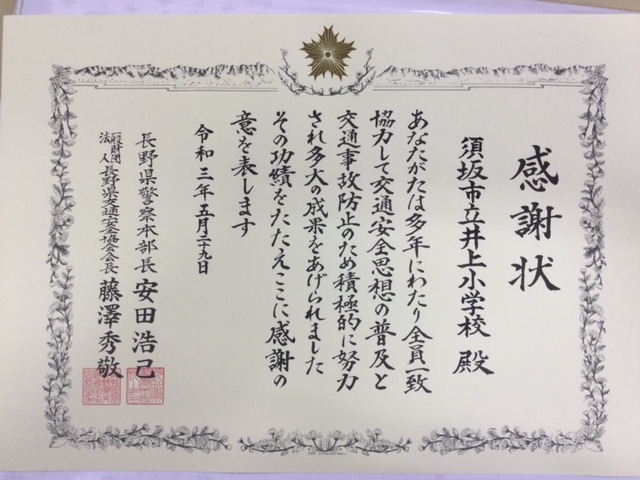 感謝状
須坂市立井上小学校 殿
あなたがたは多年にわたり全員一致
協力して交通安全思想の普及と
交通事故防止のため積極的に努力
され多大の成果をあげられました
その功績をたたえここに感謝の
意を表します
令和三年五月二十九日
長野県警察本部長 安田浩己
一般財団法人長野県交通安全協会会長 藤澤秀敬